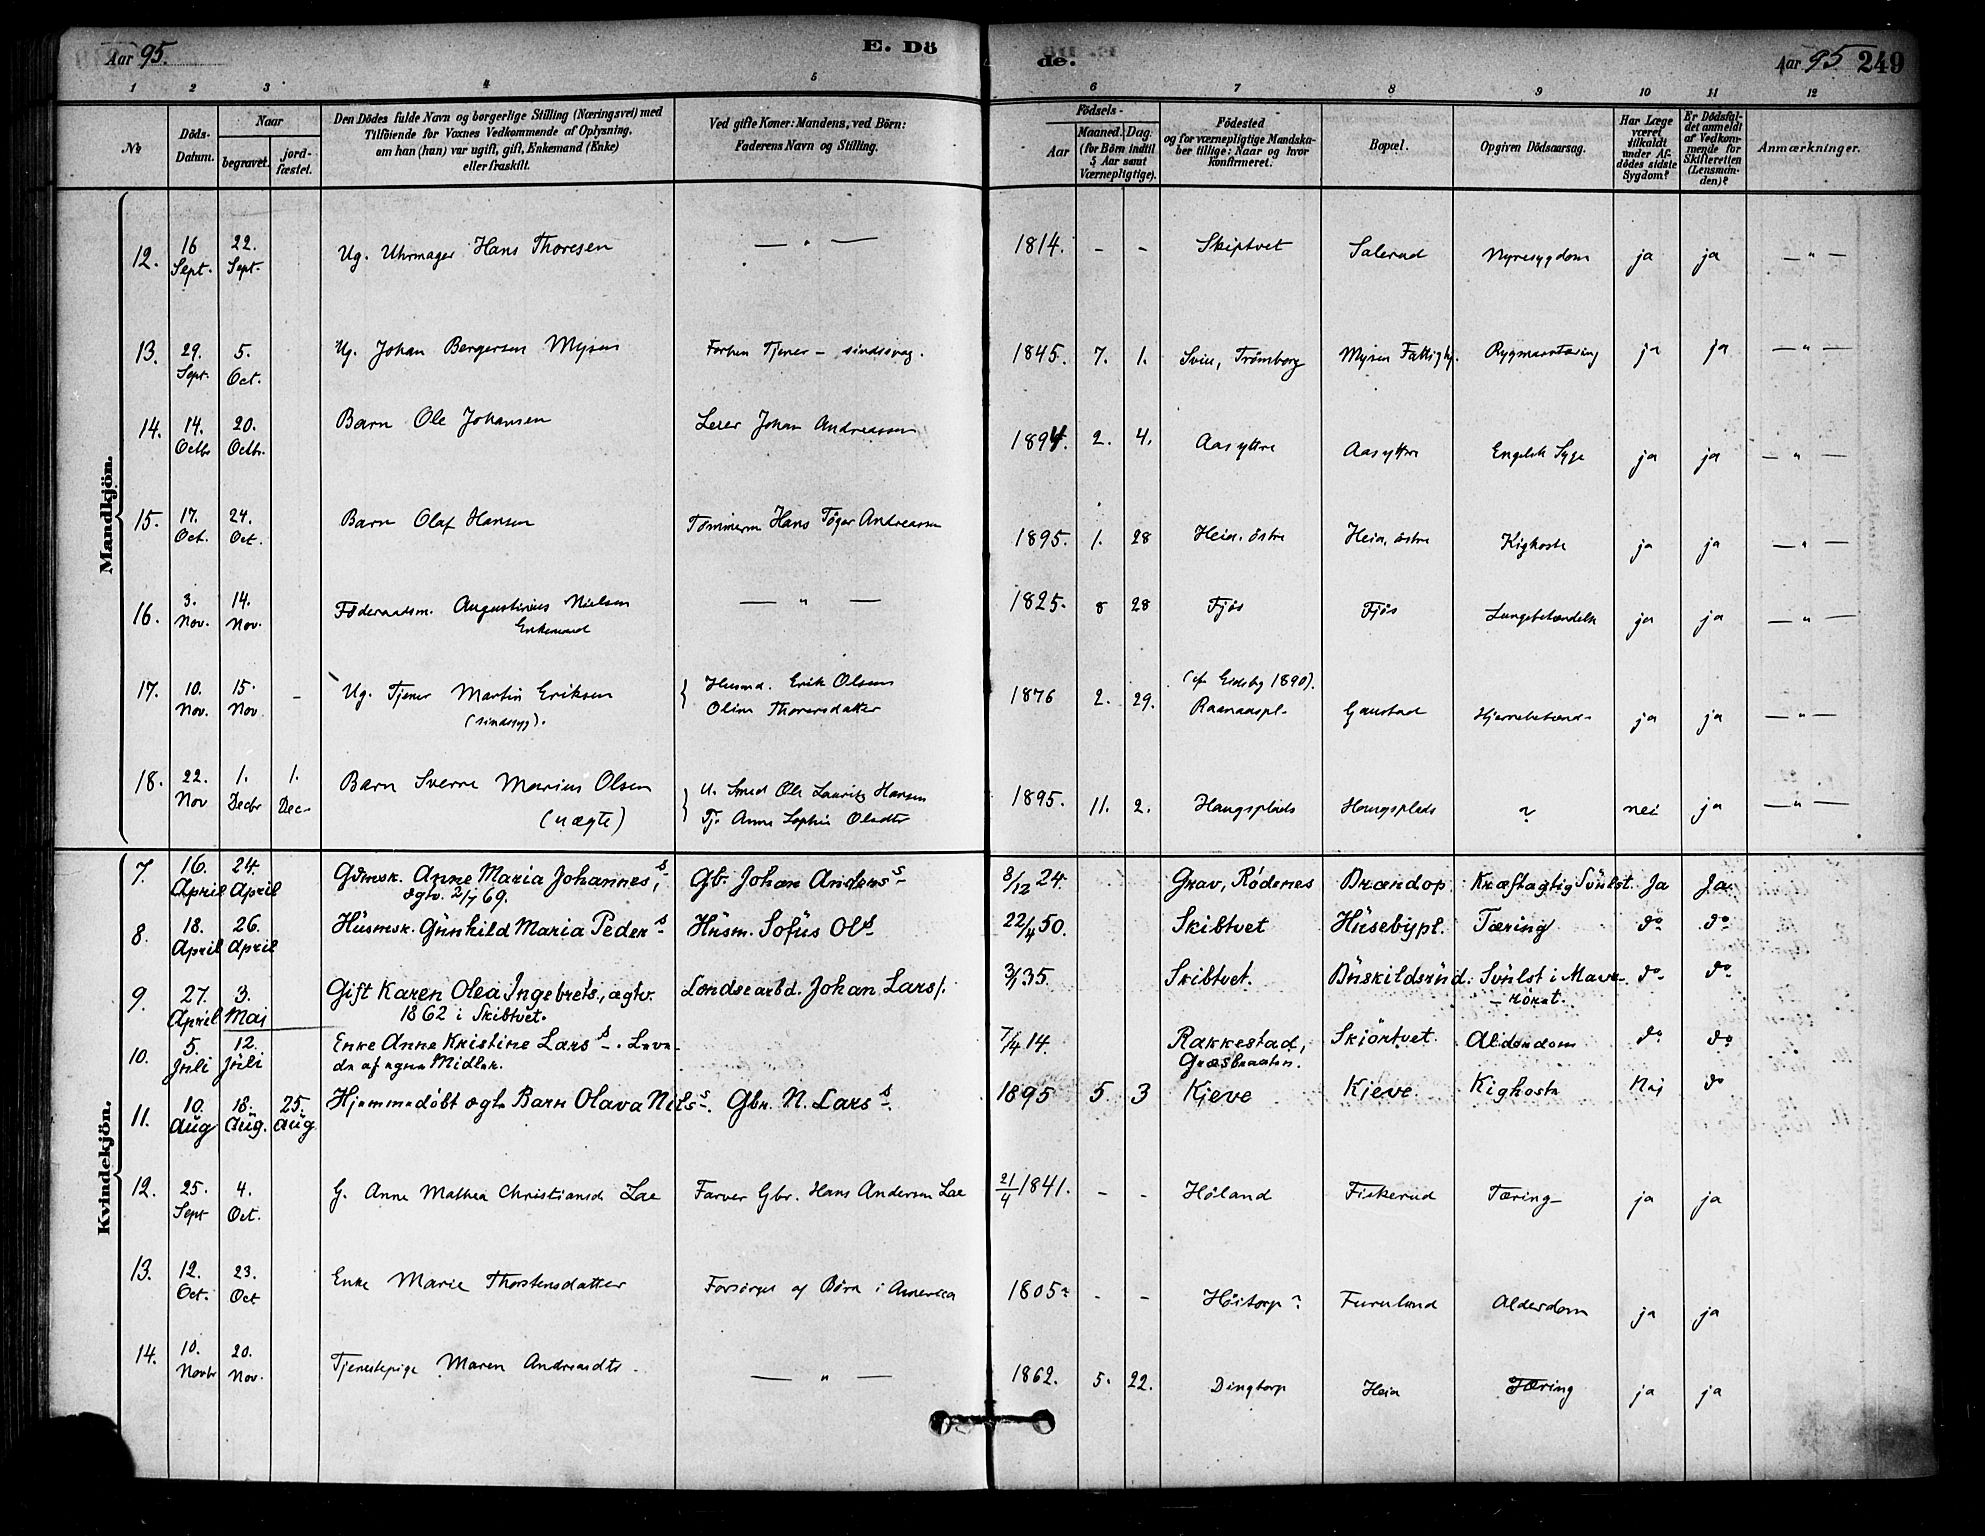 Aar 95. E. Dö de. Aar 95 249
1 2 3 4 5 6 7 8 9 10 11 12
No
Döds-Datum.
Naar
begravet.
jord-fæstet.
Den Dödes fulde Navn og borgerlige Stilling (Næringsvei) med
Tilföiende for Voxnes Vedkommende af Oplysning,
om han (hun) var ugift, gift, Enkemand (Enke)
eller fraskilt.
Ved gifte Koner: Mandens, ved Börn:
Faderens Navn og Stilling.
Födsels-
Aar
Maaned. Dag.
(for Börn indtil
5 Aar samt
Værnepligtige).
Födested
og for værnepligtige Mandska-
ber tillige: Naar og hvor
konfirmeret.
Bopæl.
Opgiven Dödsaarsag.
Har Læge
været
tilkaldt
under Af-
dödes sidste
Sygdom?
Er Dödsfal-
det anmeldt
af Vedkom-
mende for
Skifteretten
(Lensman-
den)?
Anmærkninger.
Mandkjön.
12. 16 Sept. 22. Sept. Ug. Uhrmager Hans Thoresen — " — 1814. - - Skiptvet Salerud Nyresygdom ja ja — " —
13. 29. Sept. 5. Oct. Ug. Johan Bergersen Mysen Forhen Tjener – sindssvag. 1845. 7. 1. Sviu, Trömborg Mysen Fattigh. Rygmarvstæring ja ja — " —
14. 14. Octbr 20. Octbr. Barn Ole Johansen Leier Johan Andreassen 1894. 2. 4. Aas yttre Aas yttre Engelsk Syge ja ja — " —
15. 17. Oct. 24. Oct. Barn Olaf Hansen Tömmerm Hans Töger Andreassen 1895. 1. 28 Heia, östre Heia, östre Kighoste ja ja — " —
16. 3. Nov. 14. Nov. Föderaadsm. Augustinius Nielsen
Enkemand — " — 1825. 8 28 Fjös Fjös Lungebetændelse ja ja — " —
17. 10. Nov. 15. Nov - Ug. Tjener Martin Eriksen
(sindssyg). Husmd. Erik Olsen
Olina Thoresdatter 1876 2. 29. (cf Eidsbg 1890).
Raanaaspl. Gaustad Hjernebetænd- ja ja — " —
18. 22. Nov 1. Decbr 1. Dec- Barn Sverre Marius Olsen
(uægte) U. Smed Ole Lauritz Hansen
Tj. Anne Sophie Olsdtr 1895. 11. 2. Haugsplads Haugsplads ? nei ja — " —
Kvindekjön.
7. 16. April 24. April Gdmsk. Anne Maria Johanness,
ægtv. 2/7 69. Gb. Johan Anderss 8/12 24. Grav, Rödenes Brændop. Kræftagtig Svulst. Ja Ja.
8. 18. April 26. April Husmsk. Gunhild Maria Peders Husm. Sofus Ols 22/4 50. Skibtvet Husebypl. Tæring do do
9. 27. April 3. Mai Gift Karen Olea Ingebrets., ægtv.
1862 i Skibtvet. Londsearbd. Johan Lars/. 3/1 35. Skibtvet. Buskildsrud. Svulst i Mave-
röret. do do
10. 5. Juli 12. Juli Enke Anne Kristine Larss. Leve-
de af egne Midler. 7/4 14. Rakkestad,
Græsbraaten. Skiörtvet. Alderdom do do
11. 10. Aug 18. Aug. 25. Aug Hjemmedöbt ægte Barn Olava Nilss. Gbr. N. Larss. 1895 5. 3 Kjeve Kjeve. Kighoste Nej do
12. 25. Sept 4. Oct. G. Anne Mathea Christiansd Lae Farver Gbr. Hans Andersen Lae 21/4 1841. - - Höland Fiskerud Tæring- ja ja
13. 12. Oct. 23. Oct Enke Marie Thorstensdatter Forsörges af Börn i America 1805? - - Höitorp? Furulund Alderdom ja ja
14. 10. Novbr 20. Nov. Tjenestepige Maren Andreasdtr. — " — 1862. 5. 22. Dingtorp Heia Tæring ja ja